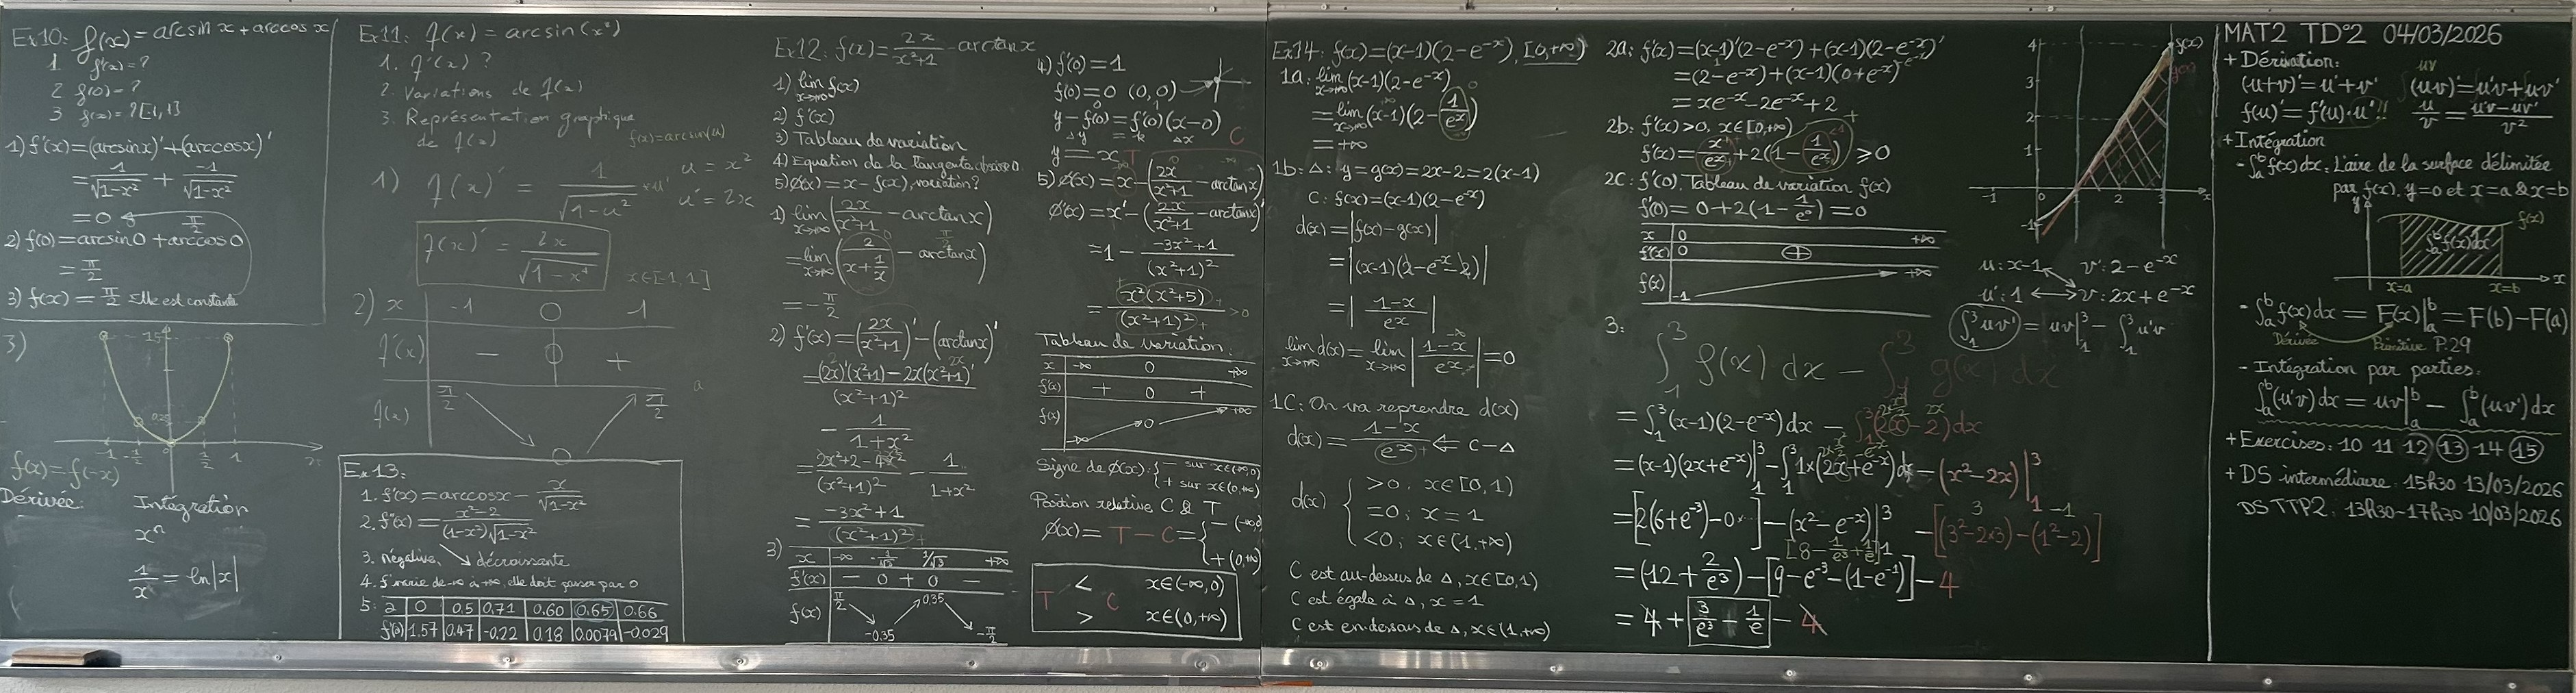 Ex10: f(x) = arcsin x + arccos x
1 f'(x) = ?
2 f(0) = ?
3 f(x) = ? [-1,1]
1) f'(x) = (arcsinx)' + (arccosx)'
= 1/√(1-x²) + -1/√(1-x²)
= 0
2) f(0) = arcsin0 + arccos0
= π/2
3) f(x) = π/2 Elle est constante
3)
1.5
0.25
-1 -1/2 0 1/2 1
f(x) = f(-x)
Dérivée: Intégration
xⁿ
1/x = ln|x|
Ex11: f(x) = arcsin(x²)
1. f'(x) ?
2. Variations de f(x)
3. Représentation graphique
de f(x)
f(x) = arcsin(u)
1) f(x)' = 1/√(1-u²) * u'
u = x²
u' = 2x
f(x)' = 2x/√(1-x⁴)
x∈[-1,1]
2) x -1 0 1
f'(x) - 0 +
f(x) π/2 0 π/2
Ex13:
1. f'(x) = arccosx - x/√(1-x²)
2. f''(x) = x²-2/(1-x²)√(1-x²)
3. négative, décroissante
4. f' varie de -∞ à +∞, elle doit passer par 0
5: a 0 0.5 0.71 0.60 0.65 0.66
f'(a) 1.57 0.47 -0.22 0.18 0.0079 -0.029
Ex12: f(x) = 2x/x²+1 - arctanx
1) lim f(x)
x→+∞
2) f'(x)
3) Tableau de variation
4) Equation de la tangente
5) Ø(x) = x - f(x), variation?
1) lim x→+∞ (2x/x²+1 - arctanx)
= lim x→+∞ (2/x+1/x - arctanx)
π/2
= -π/2
2) f'(x) = (2x/x²+1)' - (arctanx)'
= (2x)'(x²+1) - 2x(x²+1)'/(x²+1)²
- 1/1+x²
= 2x²+2-4x²/(x²+1)² - 1/1+x²
= -3x²+1/(x²+1)²
3) x -∞ -1/√3 1/√3 +∞
f'(x) - 0 + 0 -
f(x) π/2 -0.35 0.35 -π/2
4) f'(0) = 1
f(0) = 0 (0,0)
y - f(0) = f'(0)(x-0)
Δy = k Δx
y = x T C
5) Ø(x) = x - (2x/x²+1 - arctanx)
Ø'(x) = x' - (2x/x²+1 - arctanx)'
= 1 - -3x²+1/(x²+1)²
= x²(x²+5)/(x²+1)² >0
Tableau de variation:
x -∞ 0 +∞
f'(x) + 0 +
f(x) -∞ 0 +∞
Signe de Ø(x): { - sur x∈(-∞,0)
+ sur x∈(0,+∞)
Position relative C & T
Ø(x) = T - C = { - (-∞,0)
+ (0,+∞)
T < C x∈(-∞,0)
> x∈(0,+∞)
Ex14: f(x) = (x-1)(2-e⁻ˣ), [0,+∞)
1a: lim x→+∞ (x-1)(2-e⁻ˣ)
= lim x→+∞ (x-1)(2 - 1/eˣ)
= +∞
1b: Δ: y = g(x) = 2x-2 = 2(x-1)
C: f(x) = (x-1)(2-e⁻ˣ)
d(x) = |f(x) - g(x)|
= |(x-1)(2-e⁻ˣ-2)|
= |1-x/eˣ|
lim x→+∞ d(x) = lim x→+∞ |1-x/eˣ| = 0
1C: On va reprendre d(x)
d(x) = 1-x/eˣ + ⇐ C-Δ
d(x) { >0, x∈[0,1)
=0; x=1
<0; x∈(1,+∞)
C est au-dessus de Δ, x∈[0,1)
C est égale à Δ, x = 1
C est en-dessous de Δ, x∈(1,+∞)
2a: f'(x) = (x-1)'(2-e⁻ˣ) + (x-1)(2-e⁻ˣ)'
= (2-e⁻ˣ) + (x-1)(0+e⁻ˣ)
= xe⁻ˣ - 2e⁻ˣ + 2
2b: f'(x) > 0, x∈[0,+∞)
f'(x) = x/eˣ + 2(1 - 1/eˣ) ≥ 0
2C: f'(0), Tableau de variation f(x)
f'(0) = 0 + 2(1 - 1/e⁰) = 0
x 0 +∞
f'(x) 0 +
f(x) -1 +∞
3:
∫₁³ f(x) dx - ∫₁³ g(x) dx
= ∫₁³ (x-1)(2-e⁻ˣ) dx - ∫₁³ (2x-2) dx
= (x-1)(2x+e⁻ˣ)|₁³ - ∫₁³ 1×(2x+e⁻ˣ) dx - (x²-2x)|₁³
= [2(6+e⁻³)-0] - (x²-e⁻ˣ)|₁³ - [(3²-2×3)-(1²-2)]
[8 - 1/e³ + 1/e]
= (12 + 2/e³) - [9-e⁻³-(1-e⁻¹)] - 4
= 4 + 3/e³ - 1/e - 4
4
3
2
1
-1
-1 0 1 2 3 x
f(x)
g(x)
u: x-1 v': 2-e⁻ˣ
u': 1 v: 2x+e⁻ˣ
∫₁³ uv' = uv|₁³ - ∫₁³ u'v
MAT2 TD°2 04/03/2026
+ Dérivation:
uv
(u+v)' = u'+v' (uv)' = u'v+uv'
f(u)' = f'(u)·u' !! u/v = u'v-uv'/v²
+ Intégration
- ∫ₐᵇ f(x) dx: L'aire de la surface délimitée
par f(x), y=0 et x=a & x=b
y
f(x)
∫ₐᵇ f(x)dx
x
x=a x=b
- ∫ₐᵇ f(x) dx = F(x)|ₐᵇ = F(b) - F(a)
Dérivée Primitive P.29
- Intégration par parties:
∫ₐᵇ (u'v) dx = uv|ₐᵇ - ∫ₐᵇ (uv') dx
+ Exercises: 10 11 12 13 14 15
+ DS intermédiaire: 15h30 13/03/2026
DS TTP2: 13h30-17h30 10/03/2026